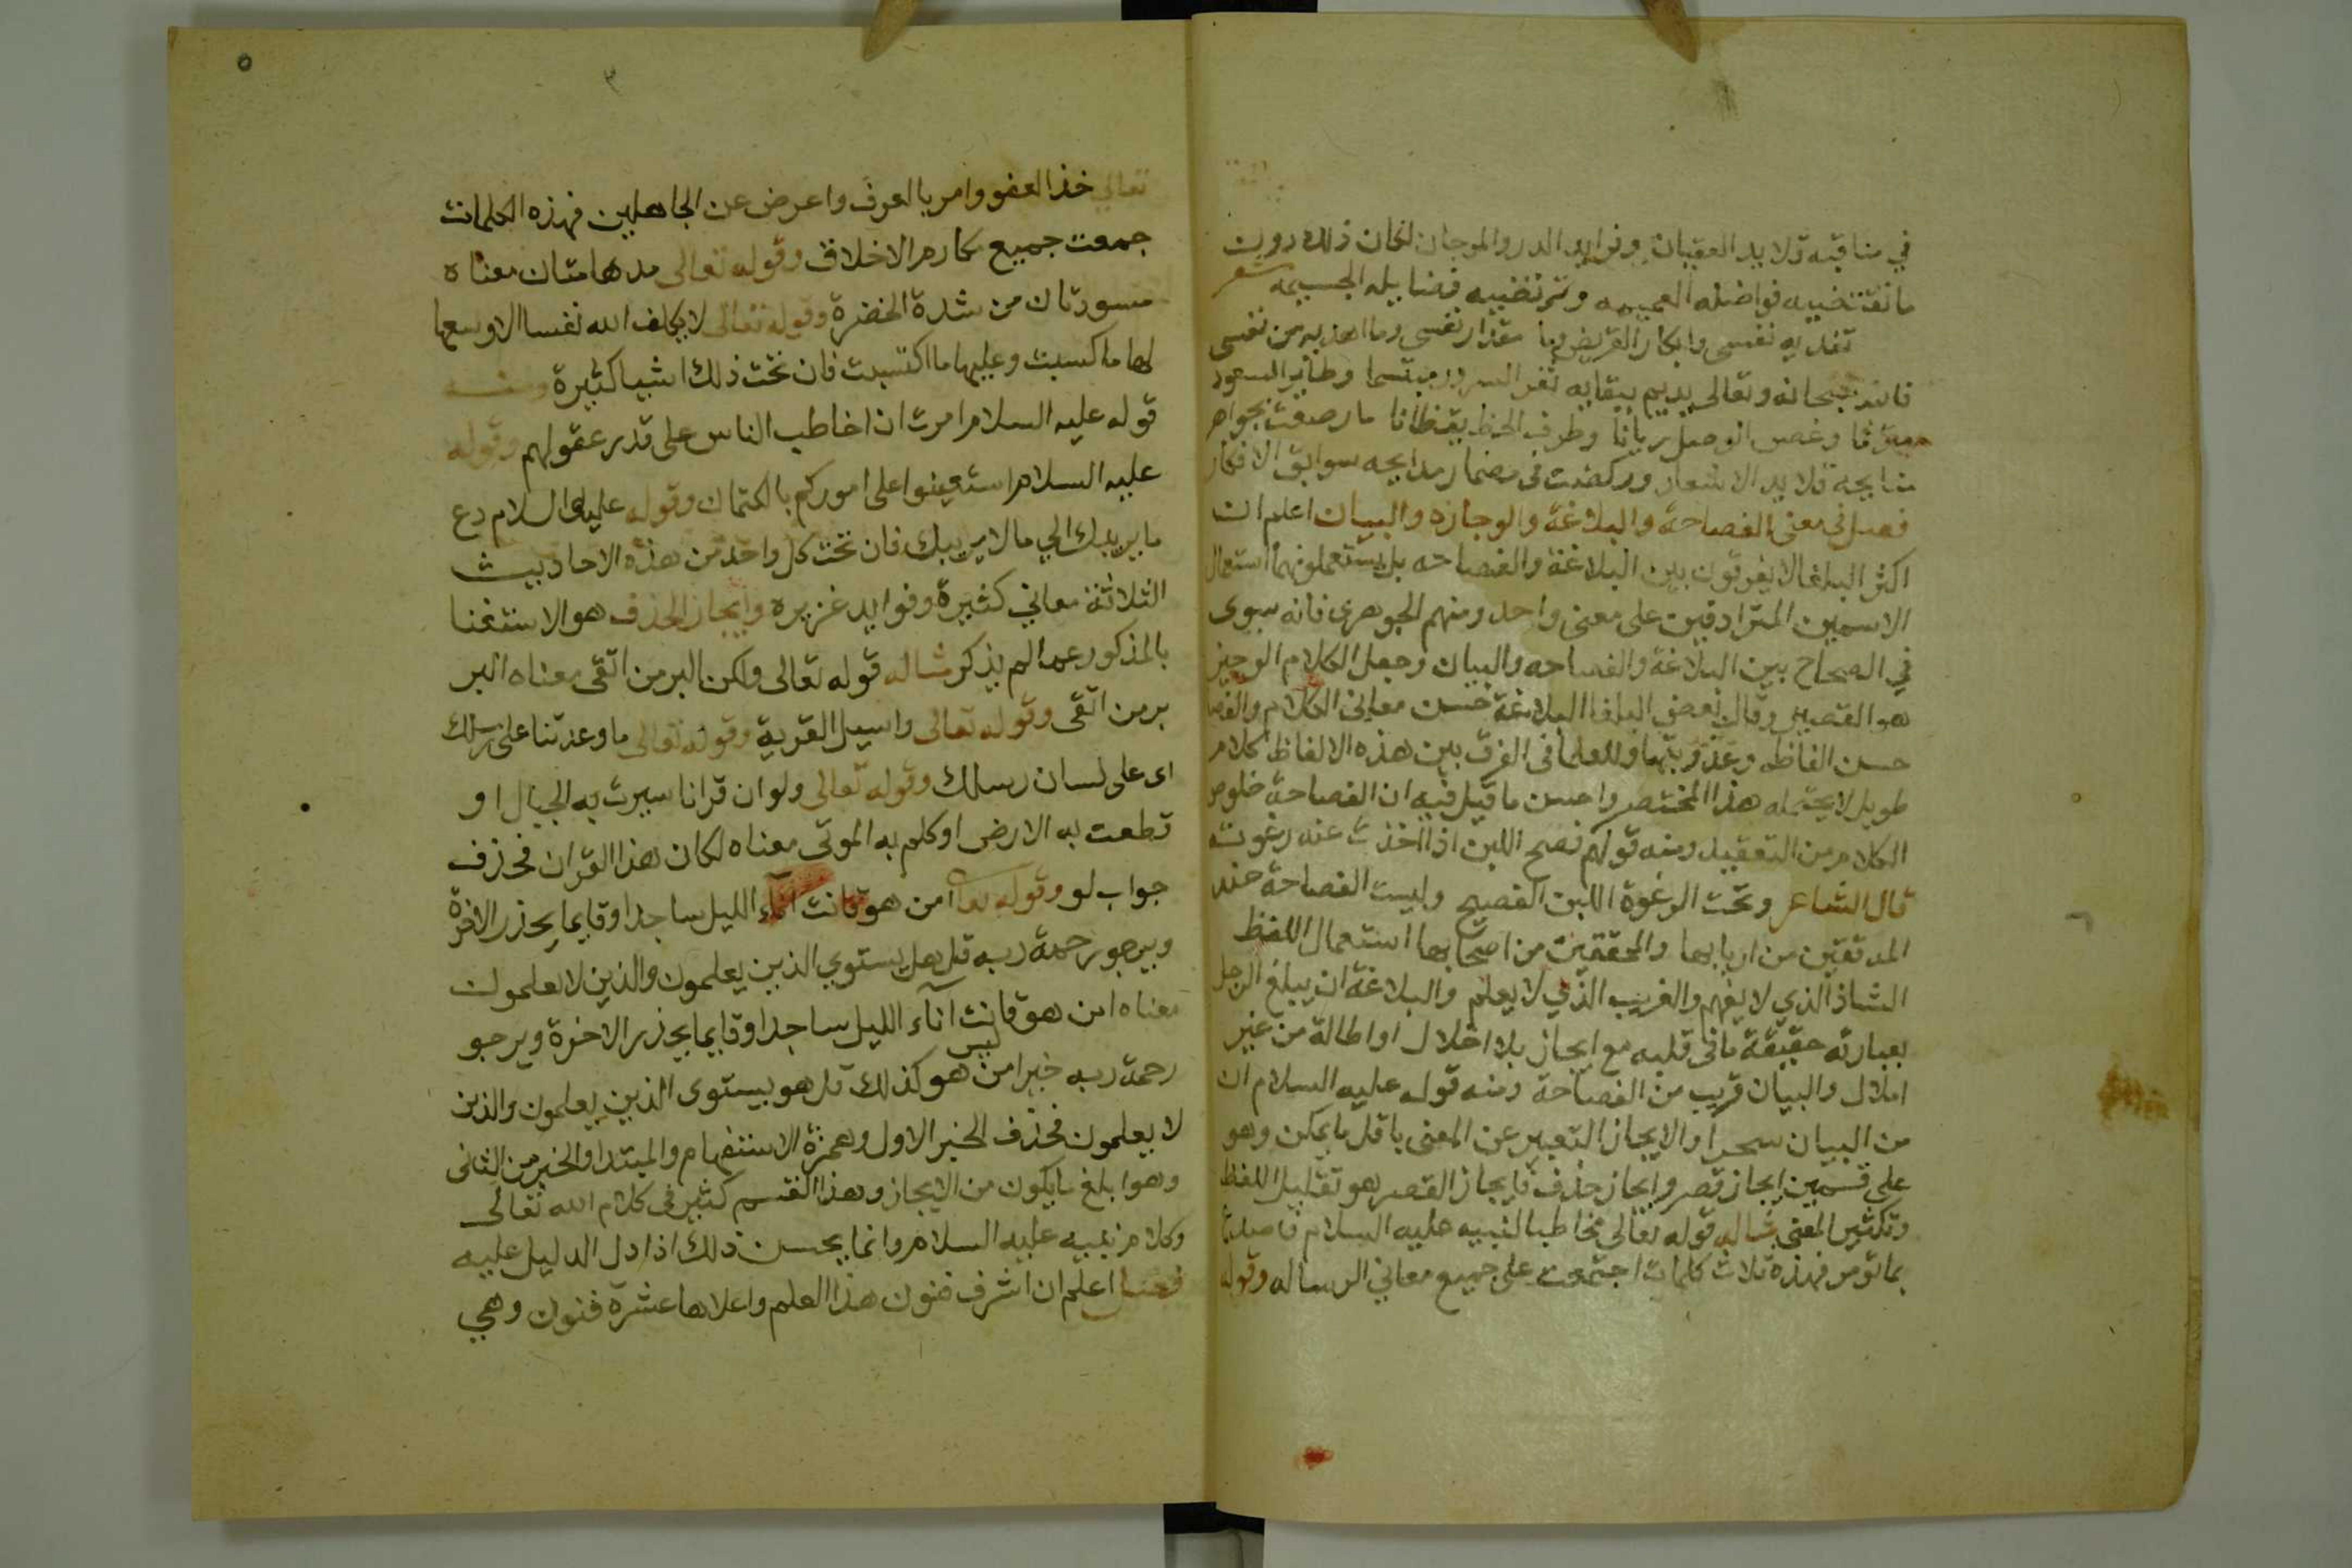 في مناقبه قلايد العقيان وفرايد الدر والمرجان لكان ذلك دون
ما تقتضيه فواضله العميمه وترتضيه فضايله الجسيمه شعر
تفديه نفسي وابكار القريض وما مقدار نفسي وما اهديه من نفسي
فالله سبحانه وتعالى يديم ببقايه ثغر السرور مبتسما وطاير السعود
وغصن الوصل ريانا وطرف الحظ يقظانا ما رصعت بجواهر
مدايحه قلايد الاشعار وركضت في مضمار مدايحه سوابق الافكار
فصل في معنى الفصاحة والبلاغة والوجازه والبيان اعلم ان
اكثر البلغا لا يفرقون بين البلاغة والفصاحه بل يستعملونهما استعمال
الاسمين المترادفين على معنى واحد ومنهم الجوهرى فانه سوى
في الصحاح بين البلاغة والفصاحه والبيان وجعل الكلام الوجيز
هو القصير وقال بعض البلغا البلاغة حسن معاني الكلام والفصا
حسن الفاظه وعذوبتها وللعلما فى الفرق بين هذه الالفاظ كلام
طويل لا يحتمله هذا المختصر واحسن ما قيل فيه ان الفصاحة خلوص
الكلام من التعقيد ومنه قولهم فصح اللبن اذا اخذت عنه رغوته
قال الشاعر وتحت الرغوة اللبن الفصيح وليست الفصاحة عند
المدققين من اربابها والمحققين من اصحابها استعمال اللفظ
الشاذ الذي لا يفهم والغريب الذي لا يعلم والبلاغة ان يبلغ الرجل
بعبارته حقيقة ما فى قلبه مع ايجاز بلا اخلال او اطالة من غير
املال والبيان قريب من الفصاحة ومنه قوله عليه السلام ان
من البيان سحرا والايجاز التعبير عن المعنى باقل ما يمكن وهو
على قسمين ايجاز قصر وايجاز حذف فايجاز القصر هو تقليل اللفظ
وتكثير المعنى مثاله قوله تعالى مخاطبا لنبيه عليه السلام فاصدع
بما تومر فهذه ثلاث كلمات اجتمعت على جميع معاني الرساله وقوله
٥
٣
تعالى خذ العفو وامر بالعرف واعرض عن الجاهلين فهذه الكلمات
جمعت جميع مكارم الاخلاق وقوله تعالى مدهامتان معناه
مسودتان من شدة الخضرة وقوله تعالى لا يكلف الله نفسا الا وسعها
لها ما كسبت وعليها ما اكتسبت فان تحت ذلك اشيا كثيرة ومنه
قوله عليه السلام امرت ان اخاطب الناس على قدر عقولهم وقوله
عليه السلام استعينوا على اموركم بالكتمان وقوله عليه السلام دع
ما يريبك الي ما لا يريبك فان تحت كل واحد من هذه الاحاديث
الثلاثة معاني كثيرة وفوايد غزيره وايجاز الحذف هو الاستغنا
بالمذكور عما لم يذكر مثاله قوله تعالى ولكن البر من اتقى معناه البر
بر من اتقى وقوله تعالى واسيل القرية وقوله تعالى ما وعدتنا على رسلك
اى على لسان رسلك وقوله تعالى ولو ان قرانا سيرت به الجبال او
قطعت به الارض او كلم به الموتى معناه لكان هذا القران فحذف
جواب لو وقوله تعا امن هو قانت آناء الليل ساجدا وقايما يحذر الاخرة
ويرجو رحمة ربه قل هل يستوي الذين يعلمون والذين لا يعلمون
معناه امن هو قانت آناء الليل ساجدا وقايما يحذر الاخرة ويرجو
رحمة ربه خير امن هو ليس كذلك قل هو يستوى الذين يعلمون والذين
لا يعلمون فحذف الخبر الاول وهمزة الاستفهام والمبتدا والخبر من الثانى
وهو ابلغ ما يكون من الايجاز وهذا القسم كثير فى كلام الله تعالى
وكلام نبيه عليه السلام وانما يحسن ذلك اذا دل الدليل عليه
فصل اعلم ان اشرف فنون هذا العلم واعلاها عشرة فنون وهي